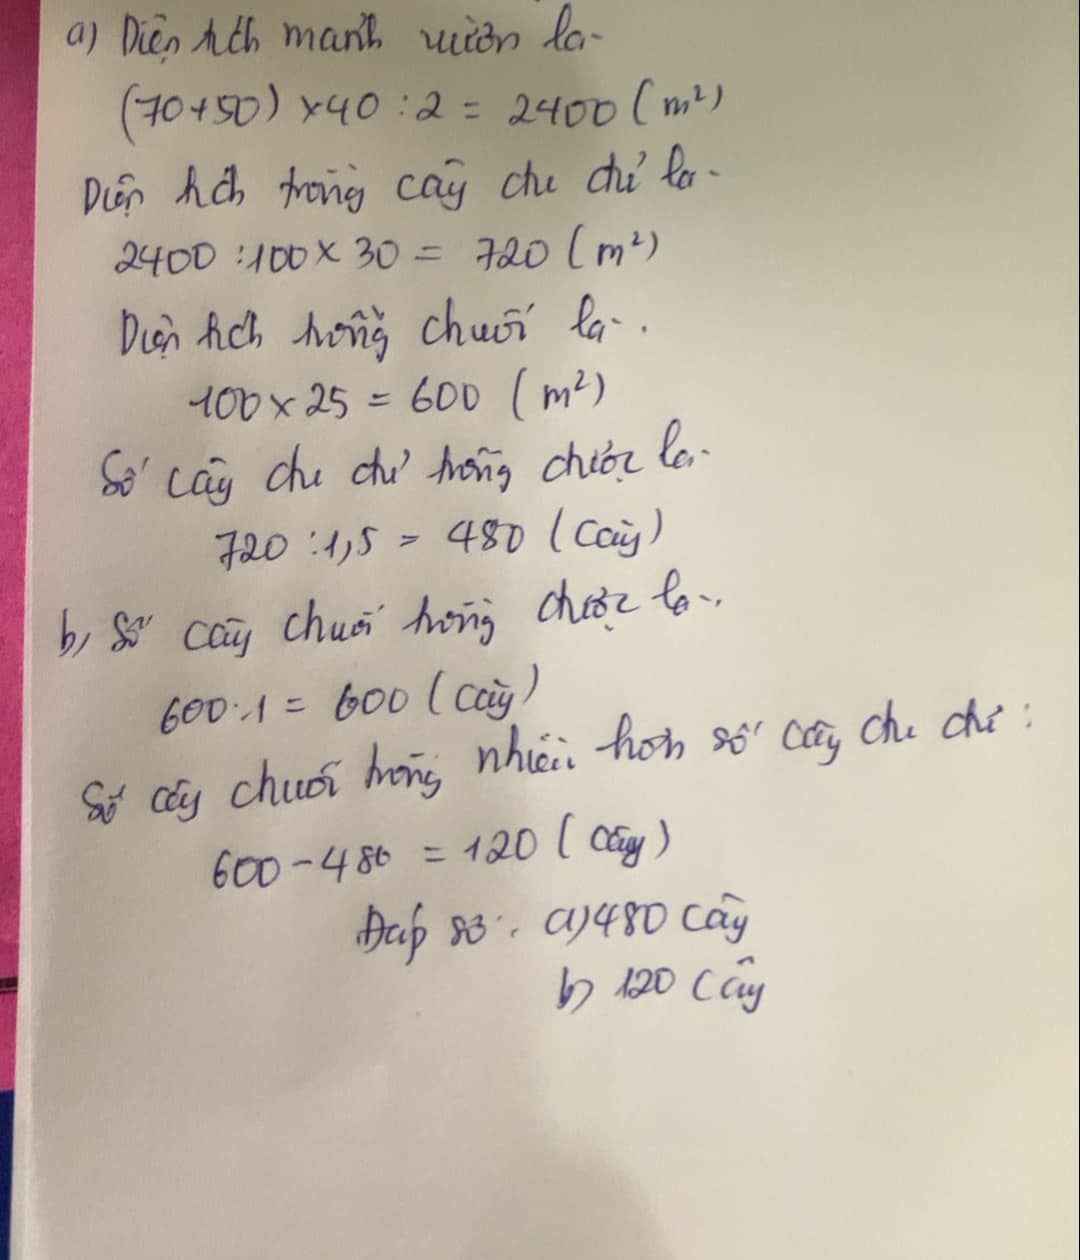 a) Diện tích mảnh vườn là
(70+50) x 40 : 2 = 2400 (m²)
Diện tích trồng cây đu đủ là
2400 : 100 x 30 = 720 (m²)
Diện tích trồng chuối là.
100 x 25 = 600 (m²)
Số cây đu đủ trồng được là
720 : 1,5 = 480 (cây)
b, Số cây chuối trồng được là
600 : 1 = 600 (cây)
Số cây chuối trồng nhiều hơn số cây đu đủ :
600 - 480 = 120 (cây)
Đáp số : a) 480 cây
b) 120 cây